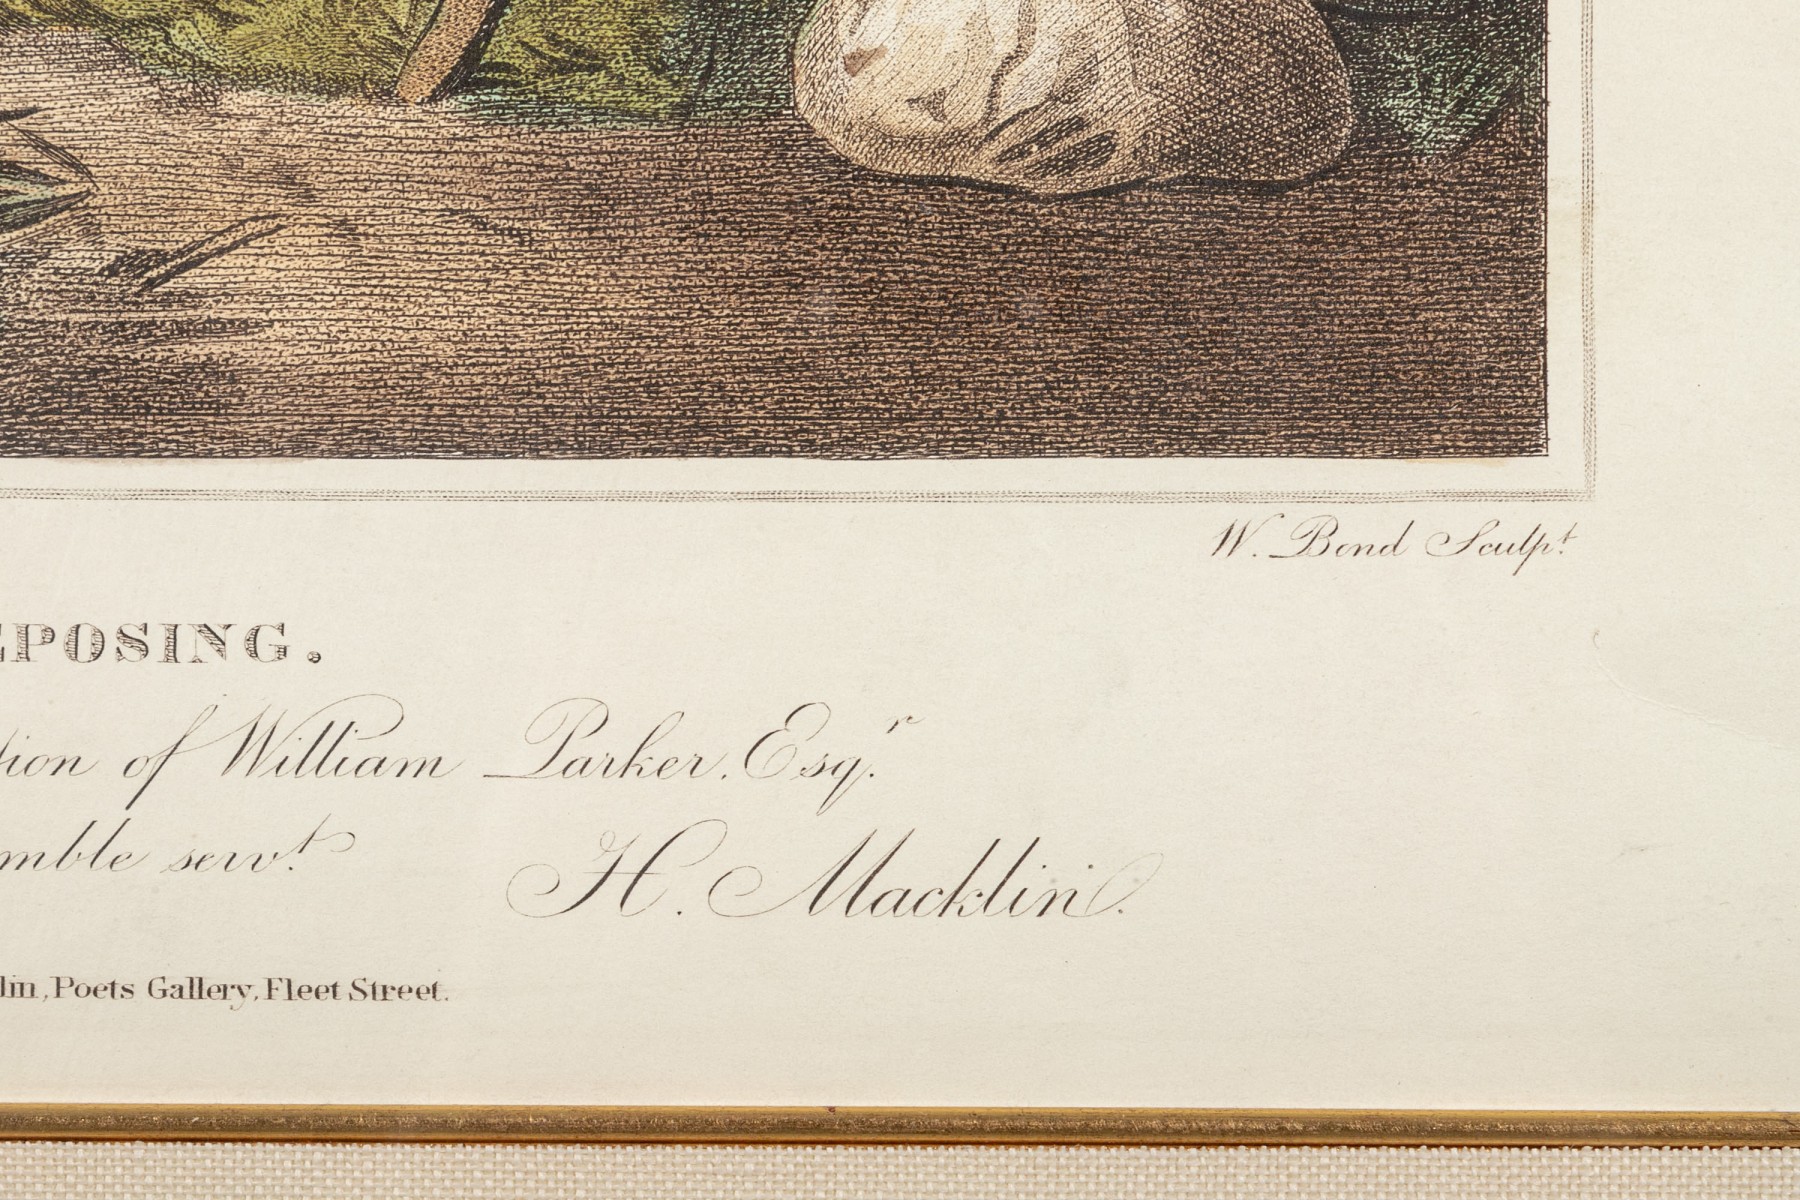 W. Bond Sculpt.
EPOSING.
tion of William Parker, Esqr.
mble servt.
H. Macklin.
lin, Poets Gallery, Fleet Street.